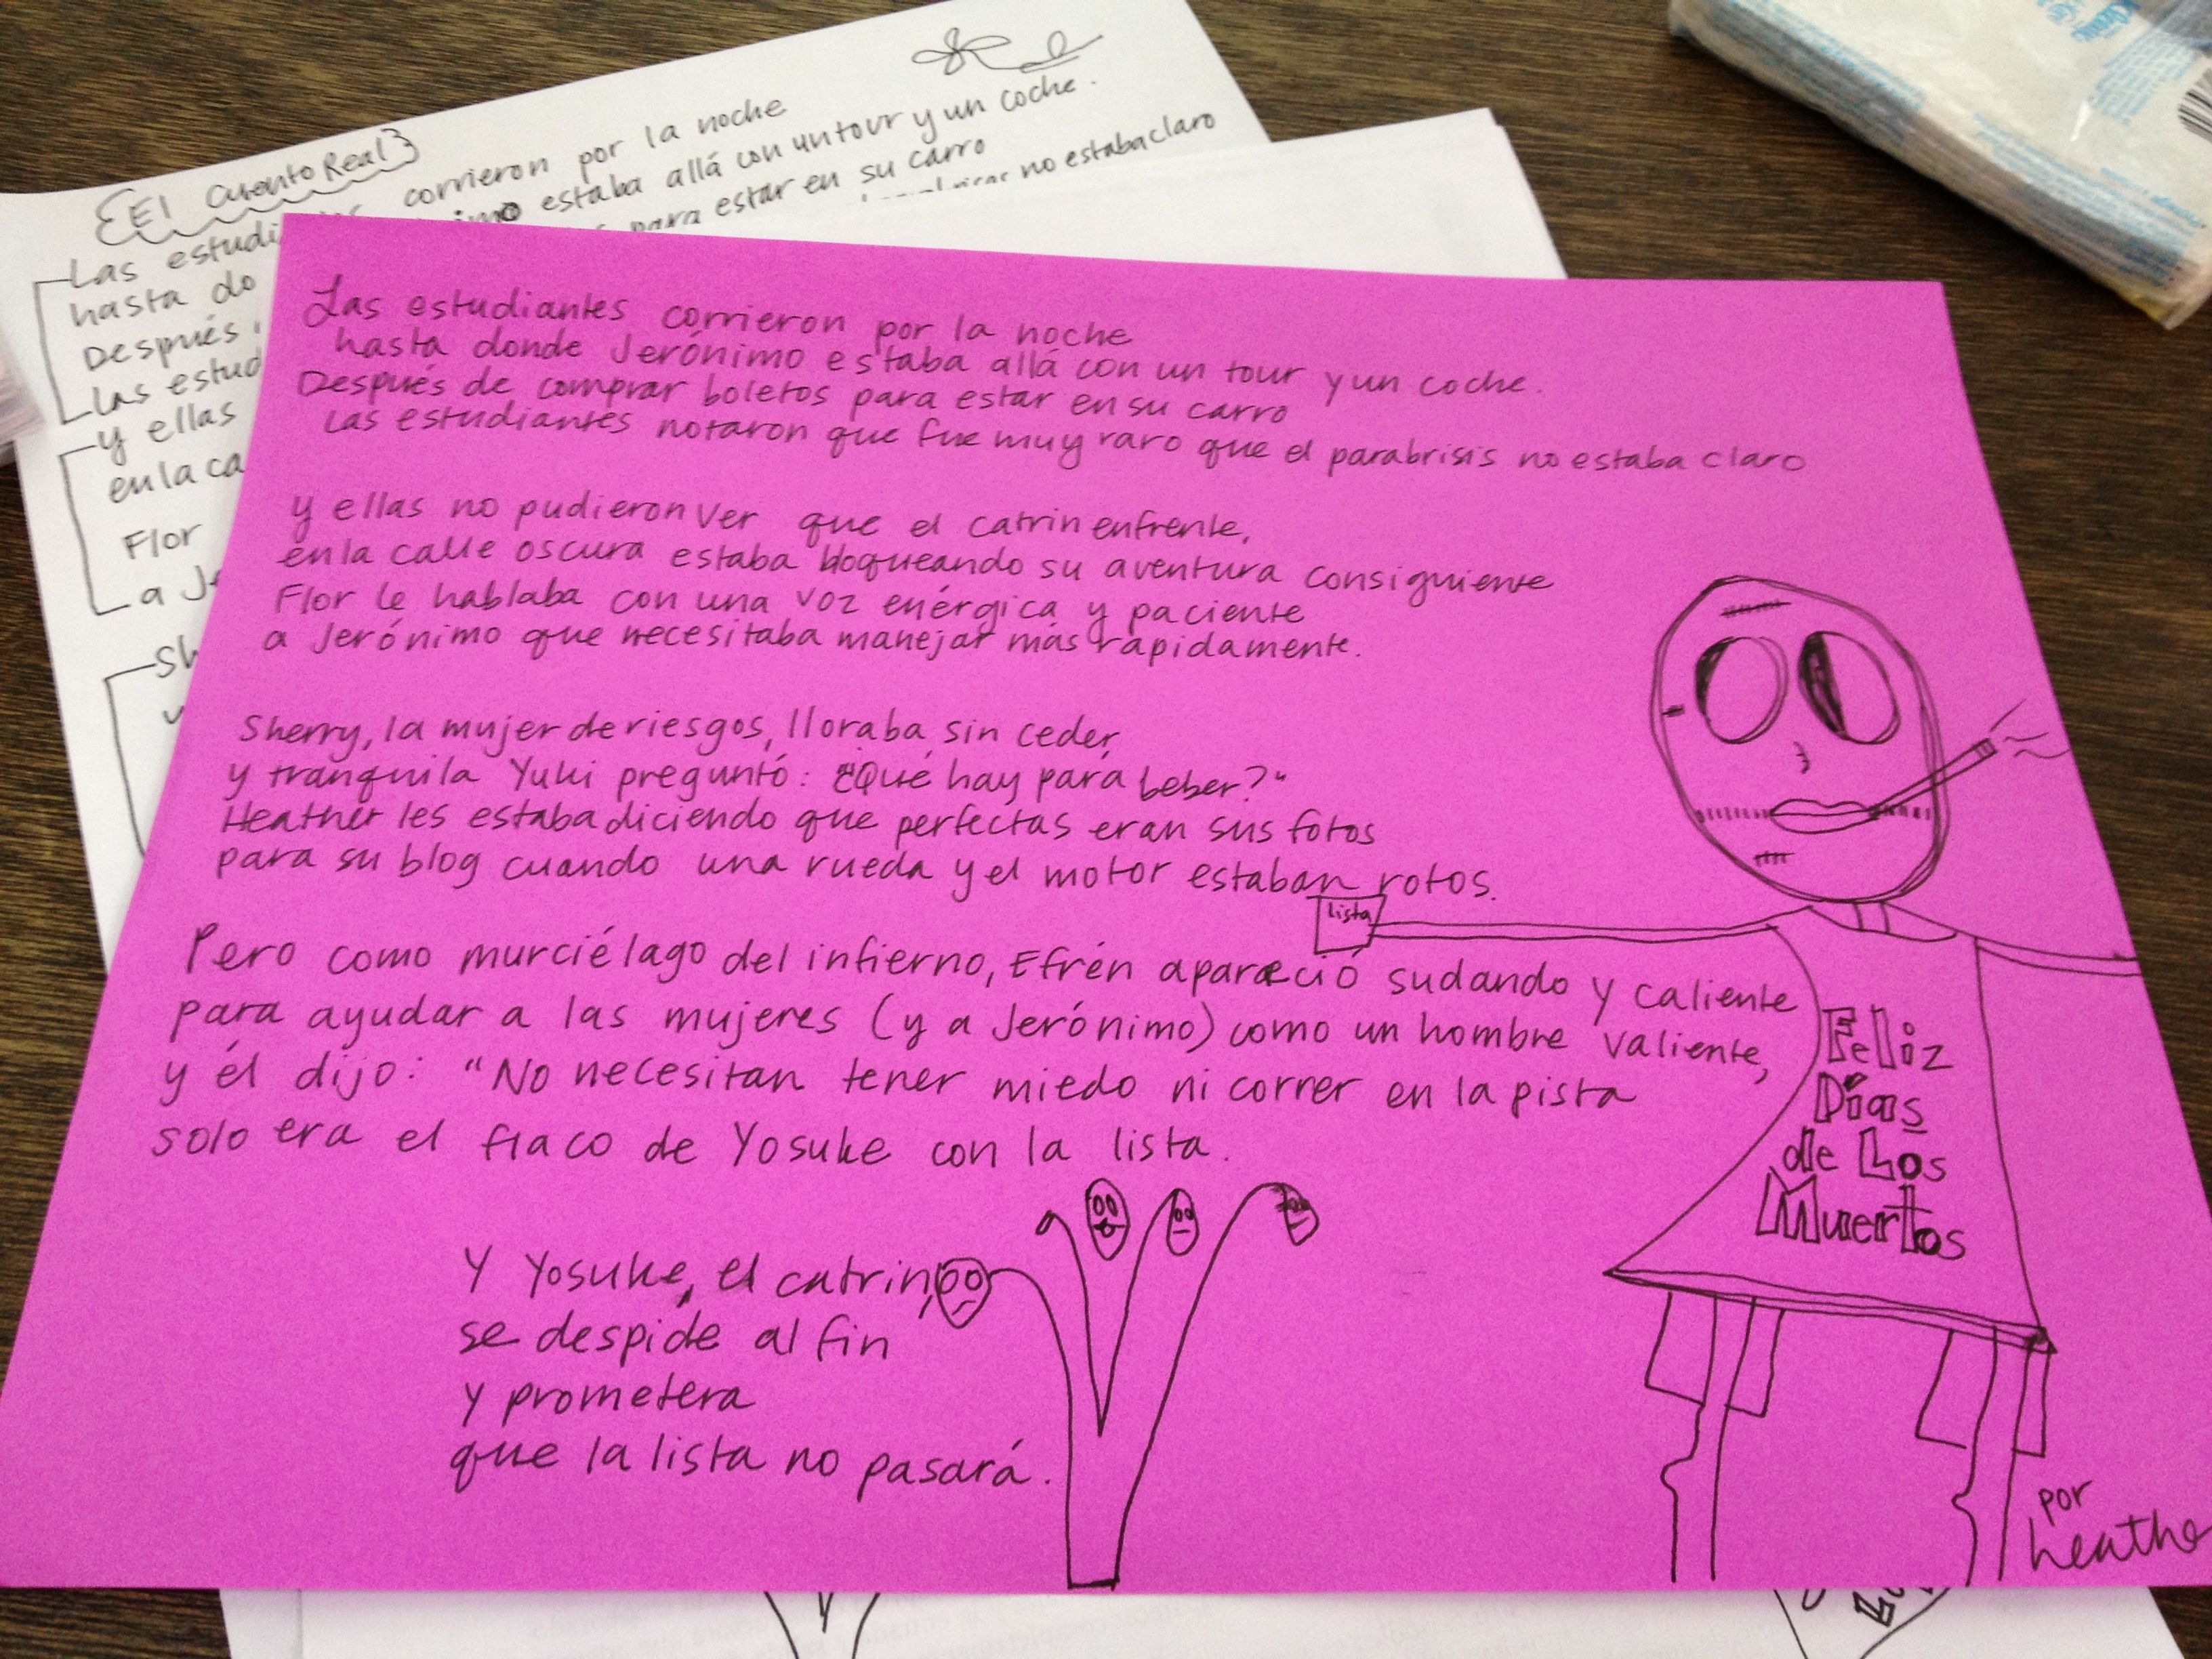 {El Cuento Real}
Las estudi
corrieron por la noche
hasta do
estaba allá con un tour y un coche.
Después
para estar en su carro
las estud
no estaba claro
y ellas
en la ca
Flor
a Je
Sh
Las estudiantes corrieron por la noche
hasta donde Jerónimo estaba allá con un tour y un coche.
Después de comprar boletos para estar en su carro
Las estudiantes notaron que fue muy raro que el parabrisis no estaba claro
y ellas no pudieron ver que el catrin enfrente,
en la calle oscura estaba bloqueando su aventura consiguiente
Flor le hablaba con una voz enérgica y paciente
a Jerónimo que necesitaba manejar más rápidamente.
Sherry, la mujer de riesgos, lloraba sin ceder,
y tranquila Yuki preguntó: "¿Qué hay para beber?"
Heather les estaba diciendo que perfectas eran sus fotos
para su blog cuando una rueda y el motor estaban rotos.
Lista
Pero como murciélago del infierno, Efrén apareció sudando y caliente
para ayudar a las mujeres (y a Jerónimo) como un hombre valiente,
y él dijo: "No necesitan tener miedo ni correr en la pista
solo era el flaco de Yosuke con la lista.
Y Yosuke, el catrin,
se despide al fin
y prometera
que la lista no pasará.
Feliz
Días
de Los
Muertos
por
Heathe